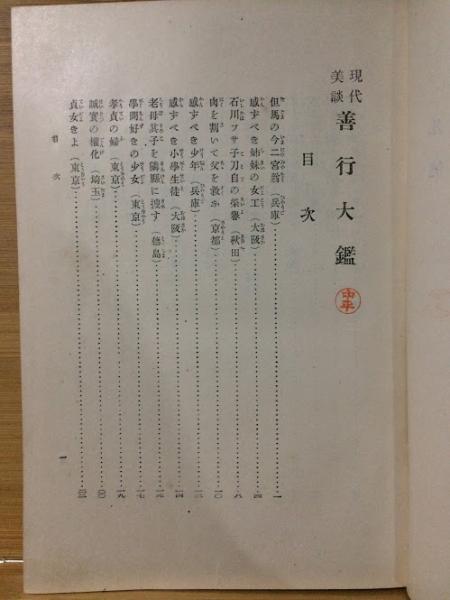 現代
美談
善行大鑑
目次
但馬の今二宮翁(兵庫)…一
感ずべき姉妹の女工(大阪)…四
石川フサ子刀自の榮譽(秋田)…八
肉を割いて父を救ふ(京都)…一〇
感ずべき少年(兵庫)…一三
感ずべき小學生徒(大阪)…一四
老母其子を隣縣に搜す(德島)…一六
學問好きの少女(東京)…一七
孝貞の婦(東京)…一九
誠實の權化(埼玉)
貞女きよ(東京)
目次
一